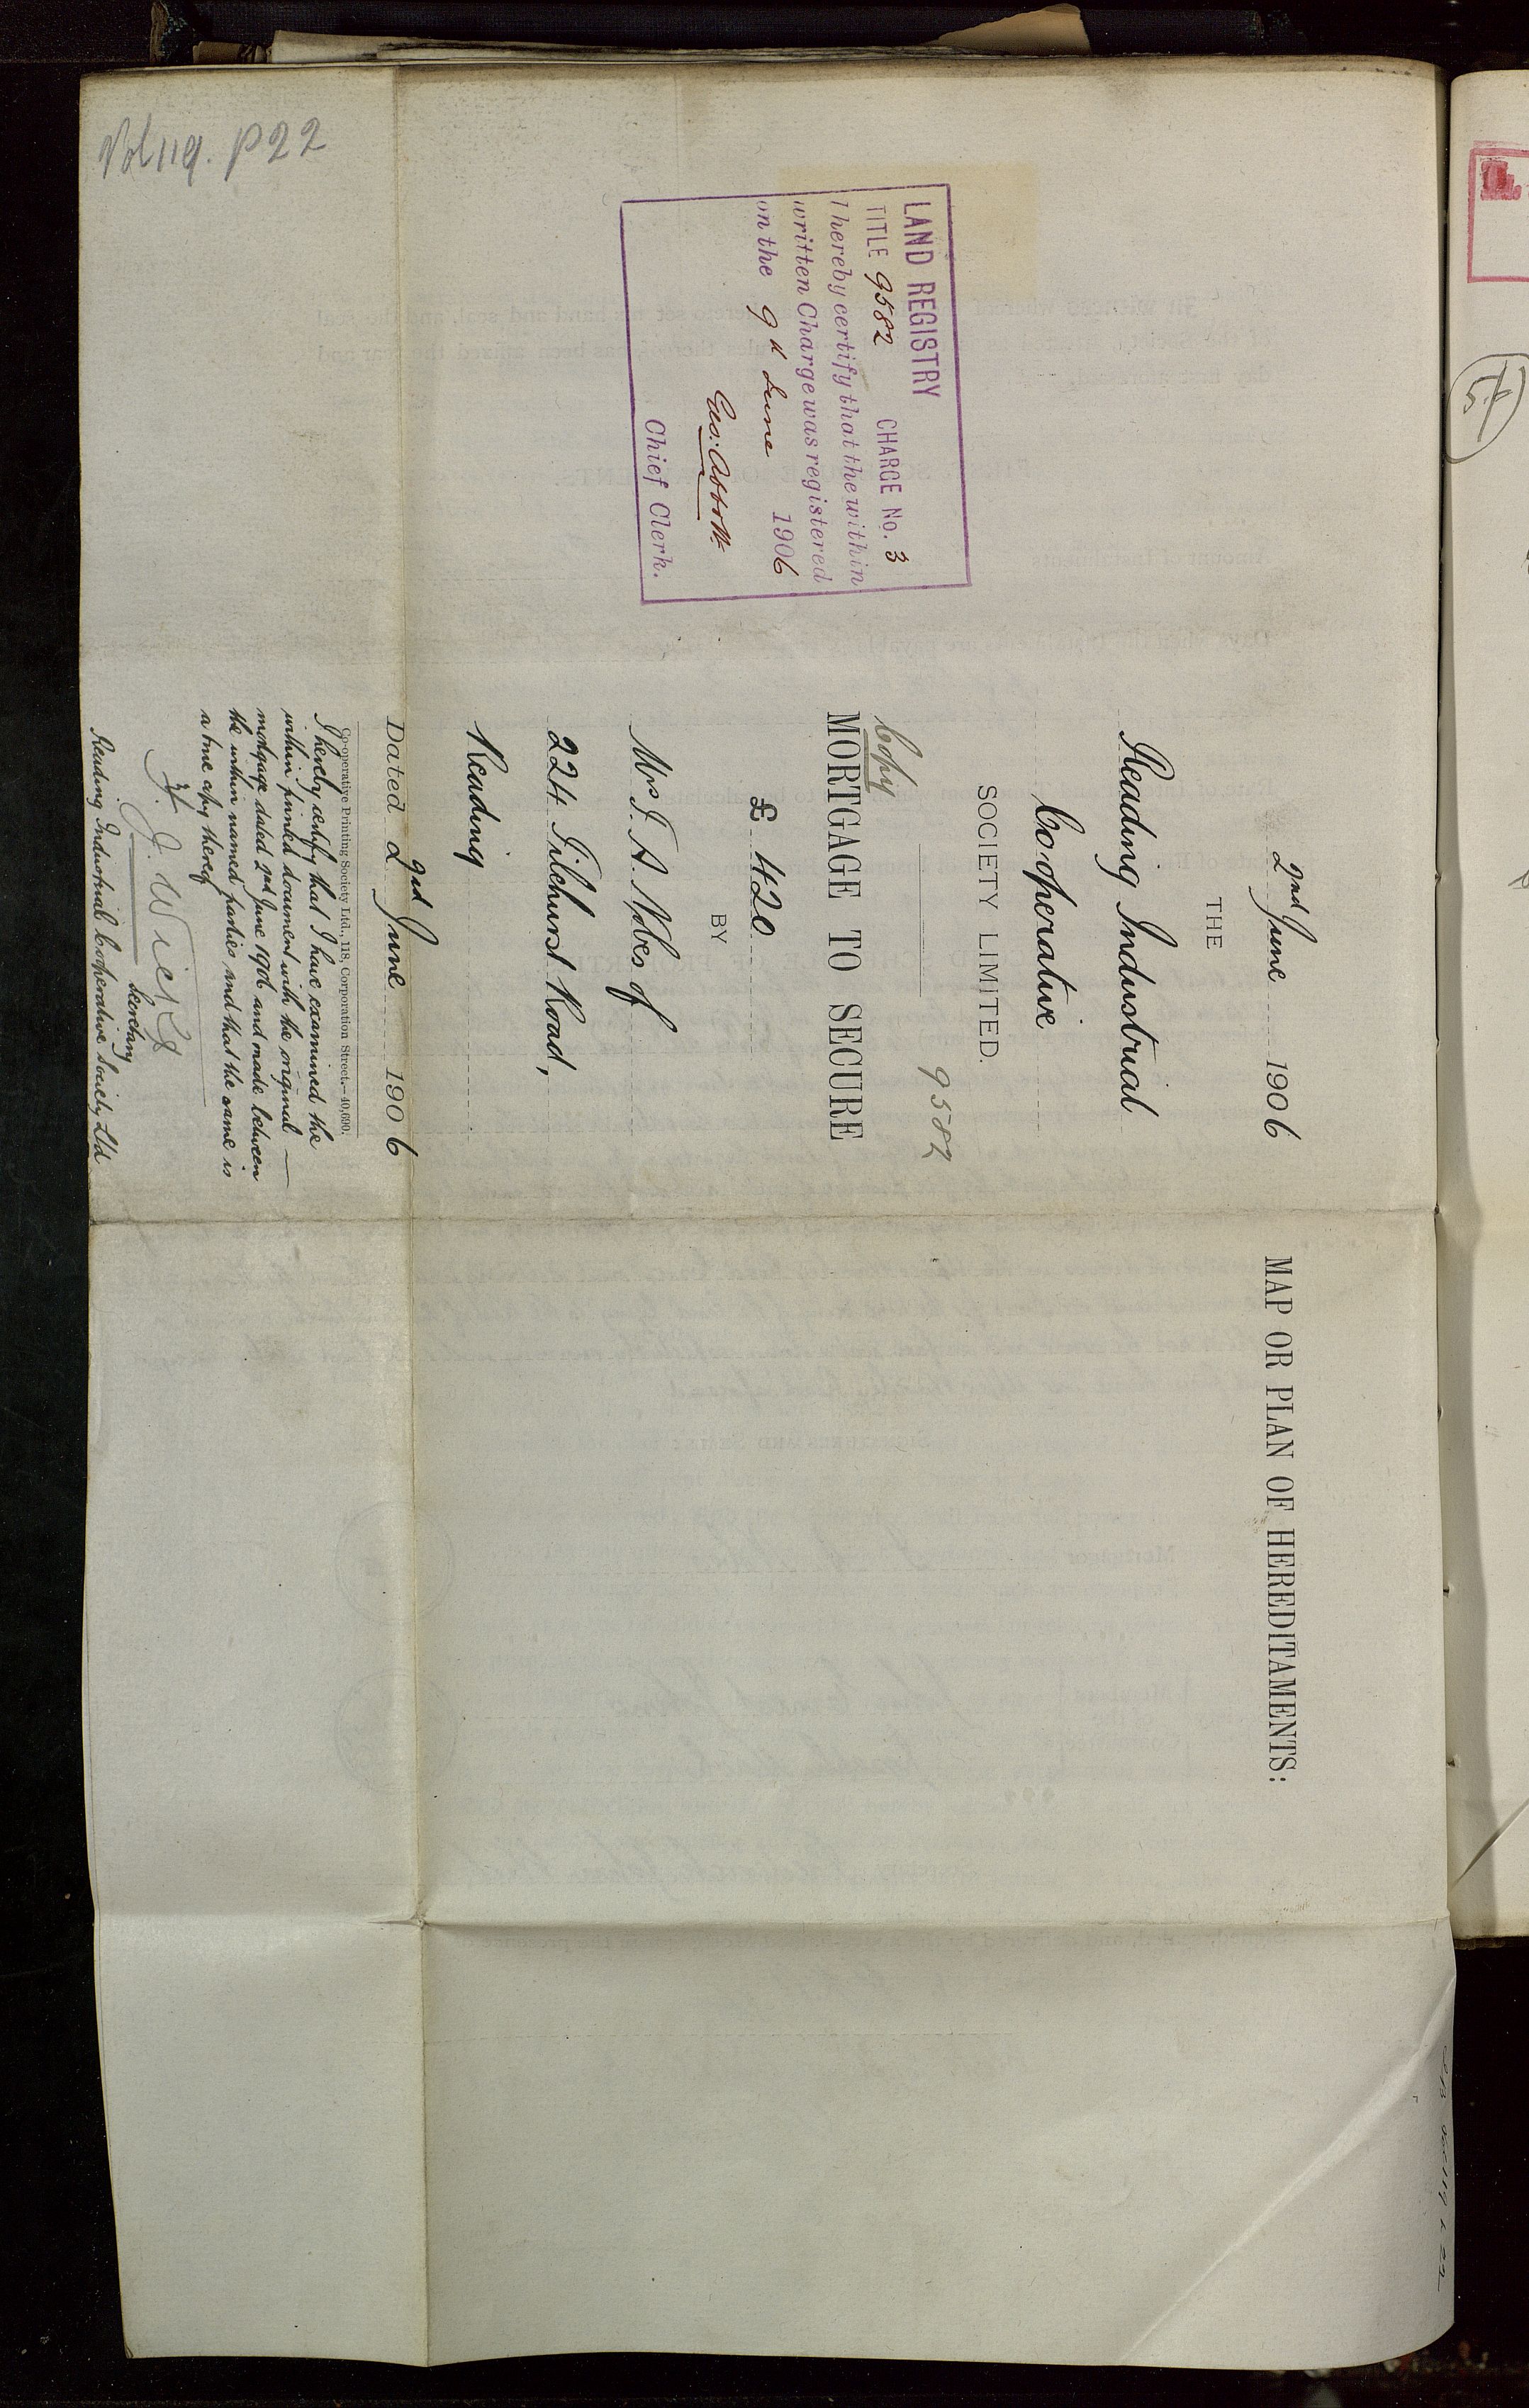 2nd June 1906
THE
Reading Industrial
Cooperative
SOCIETY LIMITED.
9582
Copy
MORTGAGE TO SECURE
£ 420
BY
Mrs J. A. Nobes of
224 Tilehurst Road,
Reading
Dated 2nd June 1906
Co-operative Printing Society Ltd., 118, Corporation Street.—40,690.
I hereby certify that I have examined the
within printed document with the original
mortgage dated 2nd June 1906 and made between
the within named parties and that the same is
a true copy thereof
Secretary
Reading Industrial Cooperative Society Ltd
LAND REGISTRY
TITLE 9582 CHARGE No. 3
I hereby certify that the within
written Charge was registered
on the 9 d June 1906
Geo: Abbott
Chief Clerk.
MAP OR PLAN OF HEREDITAMENTS:
Vol 119. P22
57